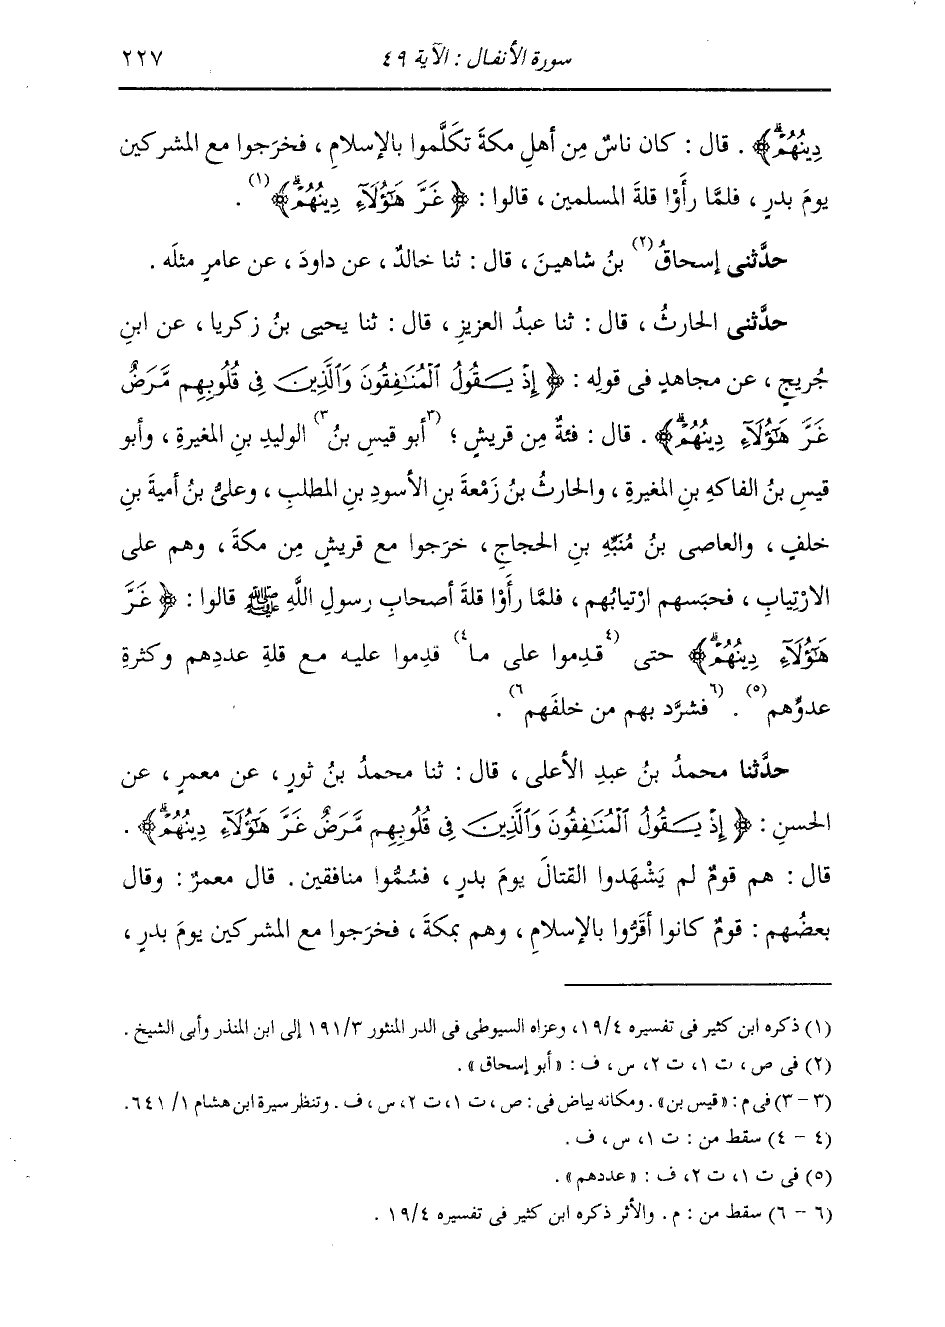 سورة الأنفال : الآية ٤٩ ٢٢٧
دِينُهُمْ ﴾ . قال : كان ناسٌ مِن أهلِ مكةَ تكَلَّموا بالإسلامِ ، فخرَجوا مع المشركين
يومَ بدرٍ ، فلمَّا رأَوْا قلةَ المسلمين ، قالوا : ﴿ غَرَّ هَٰٓؤُلَآءِ دِينُهُمْ ﴾(١) .
حدَّثنى إسحاقُ(٢) بنُ شاهينَ ، قال : ثنا خالدٌ ، عن داودَ ، عن عامرٍ مثلَه .
حدَّثنى الحارثُ ، قال : ثنا عبدُ العزيزِ ، قال : ثنا يحيى بنُ زكريا ، عن ابنِ
جُريجٍ ، عن مجاهدٍ فى قولِه : ﴿ إِذْ يَكُقُولُ ٱلْمُنَٰفِقُونَ وَٱلَّذِينَ فِى قُلُوبِهِم مَّرَضٌ
غَرَّ هَٰٓؤُلَآءِ دِينُهُمْ ﴾ . قال : فئةٌ مِن قريشٍ ؛ (٣أبو قيسِ بنُ٣) الوليدِ بنِ المغيرةِ ، وأبو
قيسِ بنُ الفاكهِ بنِ المغيرةِ ، والحارثُ بنُ زَمْعةَ بنِ الأسودِ بنِ المطلبِ ، وعلىُّ بنُ أميةَ بنِ
خلفٍ ، والعاصى بنُ مُنَبِّهِ بنِ الحجاجِ ، خرَجوا مع قريشٍ مِن مكةَ ، وهم على
الارْتِيابِ ، فحبَسهم ارْتيابُهم ، فلمَّا رأَوْا قلةَ أصحابِ رسولِ اللَّهِ ﷺ قالوا : ﴿ غَرَّ
هَٰٓؤُلَآءِ دِينُهُمْ ﴾ حتى (٤قدِموا على ما٤) قدِموا عليه مع قلةِ عددِهم وكثرةِ
عدوِّهم(٥) . (٦فشرَّد بهم من خلفَهم٦) .
حدَّثنا محمدُ بنُ عبدِ الأعلى ، قال : ثنا محمدُ بنُ ثورٍ ، عن معمرٍ ، عن
الحسنِ : ﴿ إِذْ يَقُولُ ٱلْمُنَٰفِقُونَ وَٱلَّذِينَ فِى قُلُوبِهِم مَّرَضٌ غَرَّ هَٰٓؤُلَآءِ دِينُهُمْ ﴾ .
قال : هم قومٌ لم يَشْهَدوا القتالَ يومَ بدرٍ ، فسُمُّوا منافقين . قال معمرٌ : وقال
بعضُهم : قومٌ كانوا أقَرُّوا بالإسلامِ ، وهم بمكةَ ، فخرَجوا مع المشركين يومَ بدرٍ ،
(١) ذكره ابن كثير فى تفسيره ١٩/٤، وعزاه السيوطى فى الدر المنثور ١٩١/٣ إلى ابن المنذر وأبى الشيخ .
(٢) فى ص ، ت ١، ت ٢، س ، ف : « أبو إسحاق » .
(٣ - ٣) فى م : « قيس بن » . ومكانه بياض فى : ص ، ت ١، ت ٢، س ، ف . وتنظر سيرة ابن هشام ١/ ٦٤١.
(٤ - ٤) سقط من : ت ١، س ، ف .
(٥) فى ت ١، ت ٢، ف : « عددهم » .
(٦ - ٦) سقط من : م . والأثر ذكره ابن كثير فى تفسيره ١٩/٤ .